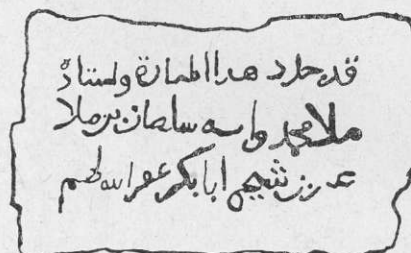 قد جدد هدا المنارة ولستاد
ملا محمد وابنه سلمان بن ملا
شيخ ابا بكر غفر الله لهم